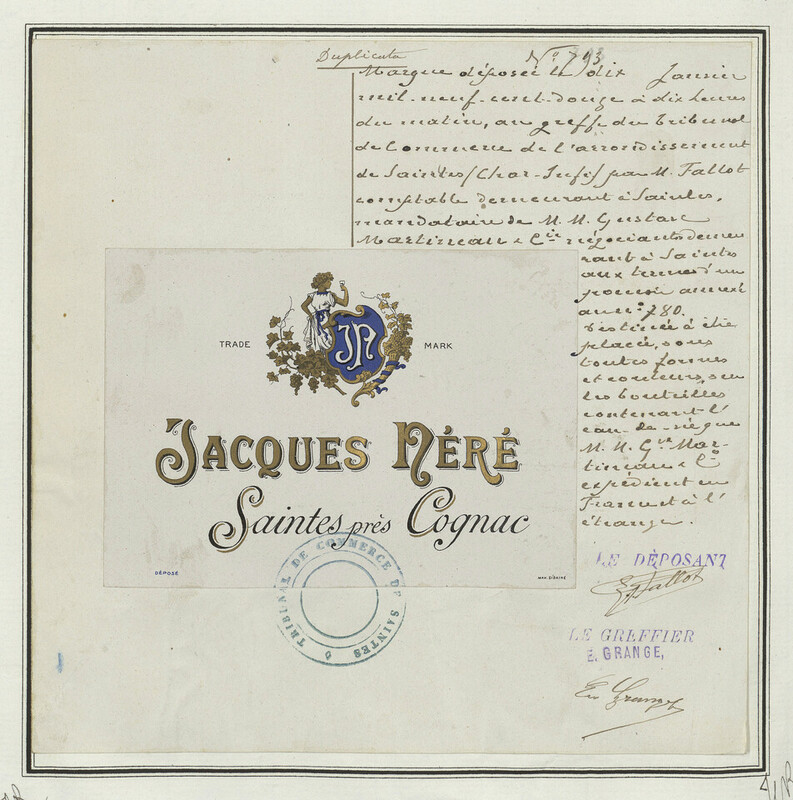 Duplicata
No 793
Marque déposée le dix Janvier
mil-neuf-cent-douze à dix heures
du matin, au greffe du Tribunal
de Commerce de l'arrondissement
de Saintes (Char-Infre) par M. Fallot
comptable demeurant à Saintes,
mandataire de M. M. Gustave
Martineau & Cie négociants demeu
rant à Saintes
aux termes d'un
pouvoir annexé
au no 780.
Destinée à être
placée, sous
toutes formes
et couleurs, sur
les bouteilles
contenant l'
eau-de-vie que
M. M. Gve Mar-
tineau & Co
expédient en
France et à l'
étranger.
TRADE MARK
JN
JACQUES NÉRÉ
Saintes près Cognac
DÉPOSÉ
TRIBUNAL DE COMMERCE DE SAINTES
LE DÉPOSANT
E. Fallot
LE GREFFIER
E. GRANGE,